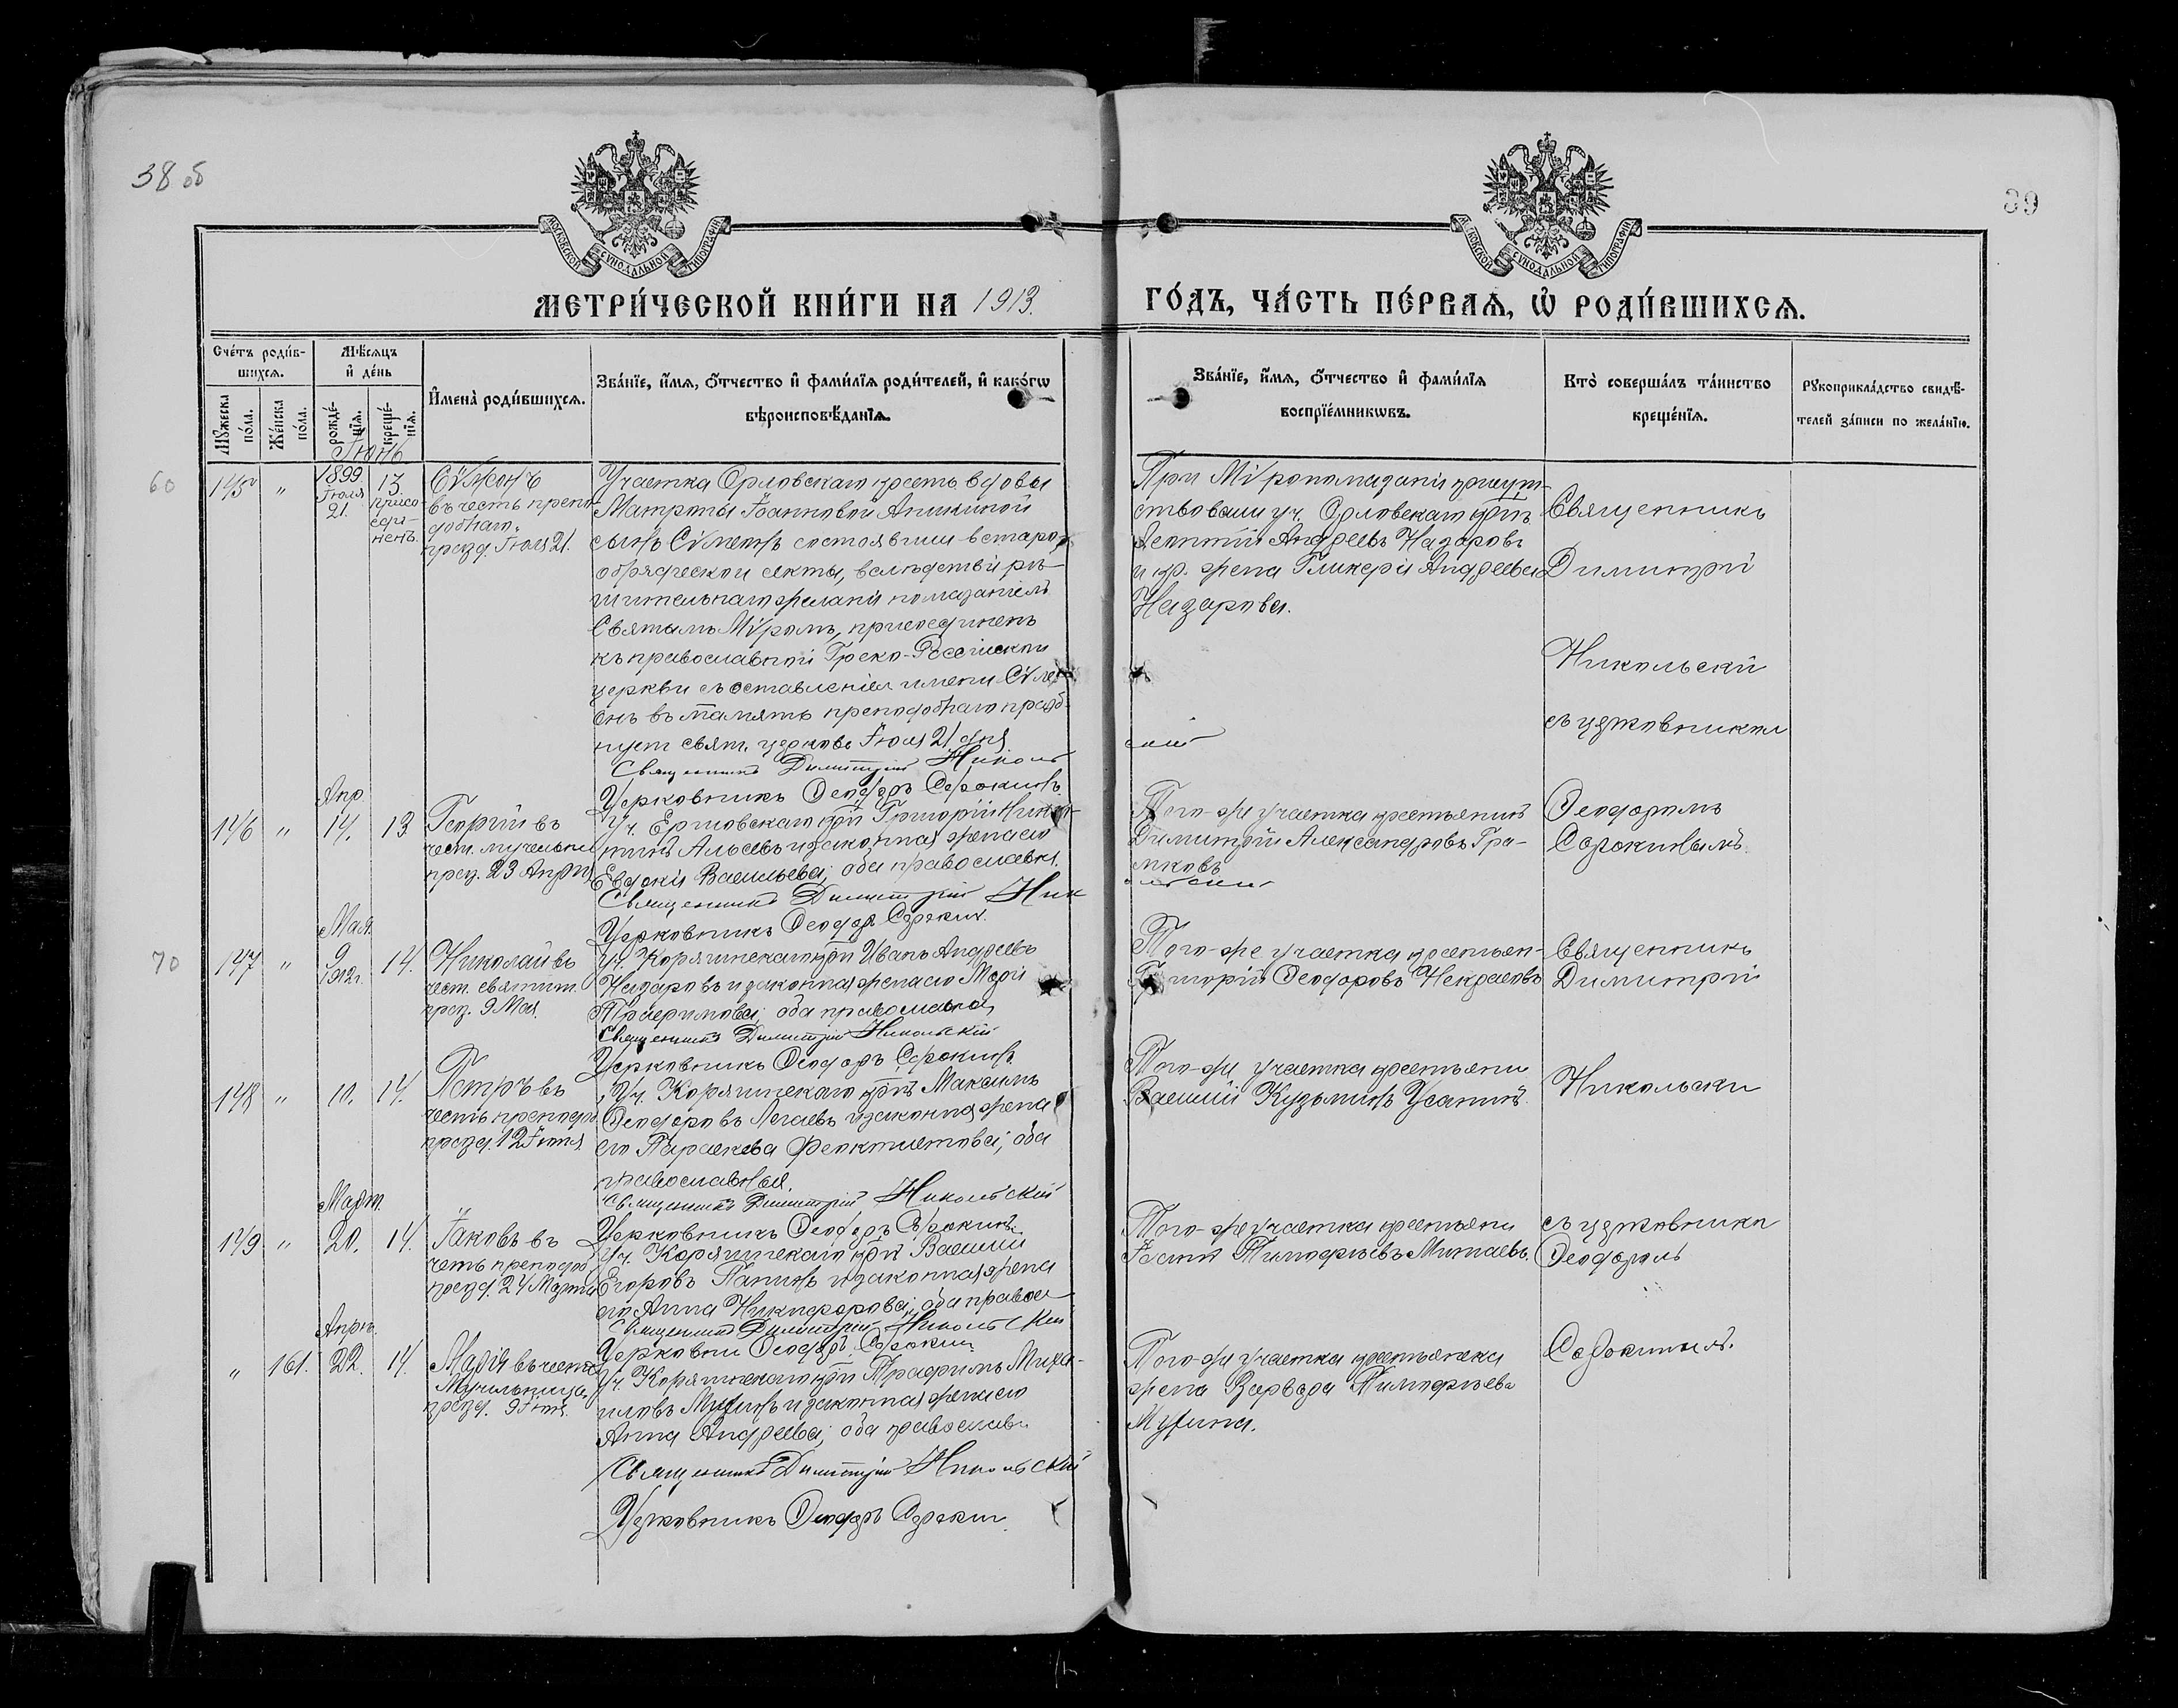 38 об
39
МОСКОВСКОЙ СѴНОДАЛЬНОЙ ТИПОГРАФІИ
МОСКОВСКОЙ СѴНОДАЛЬНОЙ ТИПОГРАФІИ
МЕТРИ́ЧЕСКОЙ КНИ́ГИ НА 1913.
ГО́ДЪ, ЧА́СТЬ ПЕ́РВАѦ, Ѡ҆ РОДИ́ВШИХСѦ.
Сче́тъ роди́в-
шихсѧ.
Мꙋ́жеска по́ла.
Же́нска по́ла.
Мѣ́сѧцъ
и҆ де́нь
рожде́-
нїѧ.
креще́-
нїѧ.
И҆мена̀ роди́вшихсѧ.
Зва́нїе, и҆́мѧ, ѻ҆́тчество и҆ фами́лїѧ роди́телей, и҆ како́гѡ
вѣроисповѣ́данїѧ.
Зва́нїе, и҆́мѧ, ѻ҆́тчество и҆ фами́лїѧ
воспрїе́мникѡвъ.
Кто̀ соверша́лъ та́инство
креще́нїѧ.
Рꙋкоприкла́дство свидѣ́-
телей за́писи по жела́нїю.
Іюнь
60
145
"
1899
Іюля
21.
13
присо
еди-
ненъ.
Сѵмеонъ
въ честь препо
добнаго,
празд. Іюля 21.
Участка Орловскаго крест. вдовы
Матроны Іоанновой Аникиной
сынъ Сѵмеонъ состоявшій в старо-
обрядческой секты, вслѣдствіи рѣ-
шительнаго желанія помазаніемъ
Святымъ Мѵромъ, присоединенъ
къ православной Греко-Россійской
церкви съ оставленіемъ имени Сѵме-
онъ въ память преподобнаго празд-
нует свят. церковь Іюля 21 дня
Священникъ Димитрій Николь
скій
Церковникъ Ѳеодоръ Сорокинъ
При Мѵропомазаніи присут-
ствовали уч. Орловскаго крнъ
Леонтій Андреевъ Назаровъ
и кр. жена Гликерія Андреевна
Назарова.
Священникъ
Димитрій
Никольскій
съ церковником
Апр.
146
"
14.
13
Георгій въ
чест. мученика
праз. 23 Апрля
Уч. Ершовскаго крн Григорій Ники-
тинъ Альевъ и законная жена его
Евдокія Васильева; оба православн.
Священникъ Димитрій Ник
ольскій
Церковникъ Ѳеодор Сорокин.
Того-же участка крестьянинъ
Димитрій Александровъ Гро-
мковъ
Ѳеодоромъ
Сорокинымъ
Мая.
70
147
"
9
1912г.
14.
Николай въ
чест. святит.
праз. 9 Мая.
Уч. Коряшнскаго крн Иванъ Андреевъ
Назаровъ и законная жена его Марія
Трофимова; оба православна
Священникъ Димитрій Никольскій
Церковникъ Ѳеодоръ Сорокинъ
Того-же участка крестьян-
Григорій Ѳеодоровъ Некрасовъ
Священникъ
Димитрій
148
"
10.
14.
Петръ въ
честь преподоб
празд. 12 Іюня
Уч. Коряшнскаго крнъ Максимъ
Ѳеодоровъ Легаевъ и законная жена
его Параскева Феоктистова; оба
православныя.
Священникъ Димитрій Никольскій
Церковникъ Ѳеодоръ Сорокинъ
Того-же участка крестьяни
Василій Кузьминъ Усанинъ.
Никольски
Март.
149
"
20.
14.
Іаковъ въ
честь преподоб
празд. 24 Марта
Уч. Коряшнскаго крн Василій
Егоровъ Папинъ и законная жена
его Анна Никифорова; оба правосл
Священникъ Димитрій Никольскій
Церковни Ѳеодоръ Сорокин
Того-же участка крестьяни
Іустинъ Тимофѣевъ Митаевъ.
съ церковника
Ѳеодоромъ
Апрль.
"
161.
22.
14.
Марія въ честь
Мученица,
празд. 9 Іюня.
Уч. Коряшнскаго крн Трофимъ Михаи-
иловъ Мухинъ и законная жена его
Анна Андреева; оба православн
Священникъ Димитрій Никольскій
Церковникъ Ѳеодоръ Сорокин
Того-же участка крестьянска
жена Варвара Тимофѣева
Мухина.
Сорокинымъ.